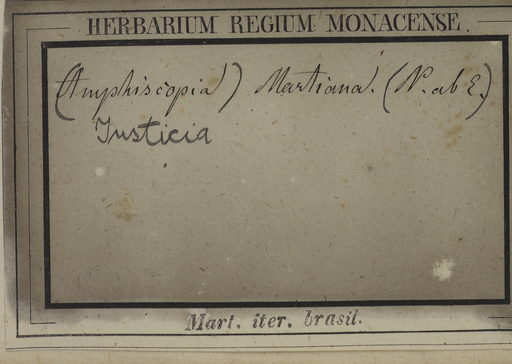 HERBARIUM REGIUM MONACENSE.
(Amphiscopia) Martiana. (N. ab E.)
Justicia
Mart. iter. brasil.